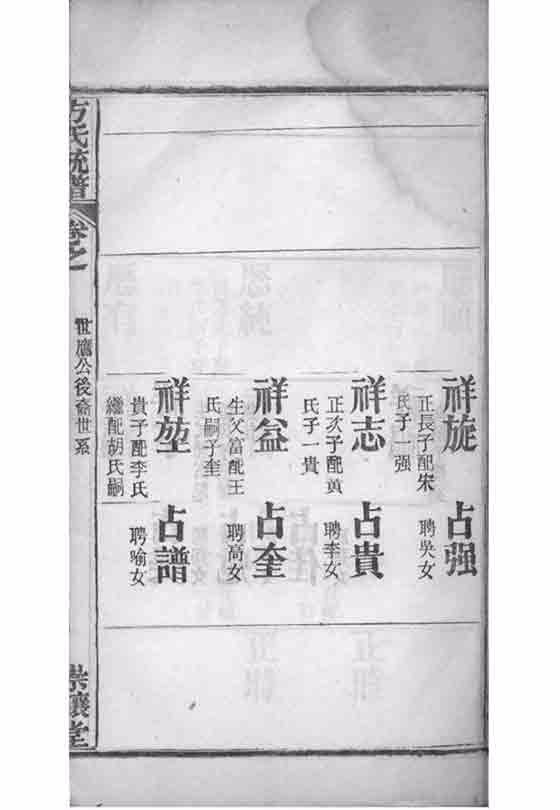 祥旋
正長子配宋
氏子一强
祥志
正次子配黄
氏子一貴
祥益
生父富配王
氏嗣子奎
祥堃
貴子配李氏
繼配胡氏嗣
占强
聘吳女
占貴
聘李女
占奎
聘高女
占譜
聘喻女
方氏統譜
卷之
世鷹公後裔世系
崇讓堂